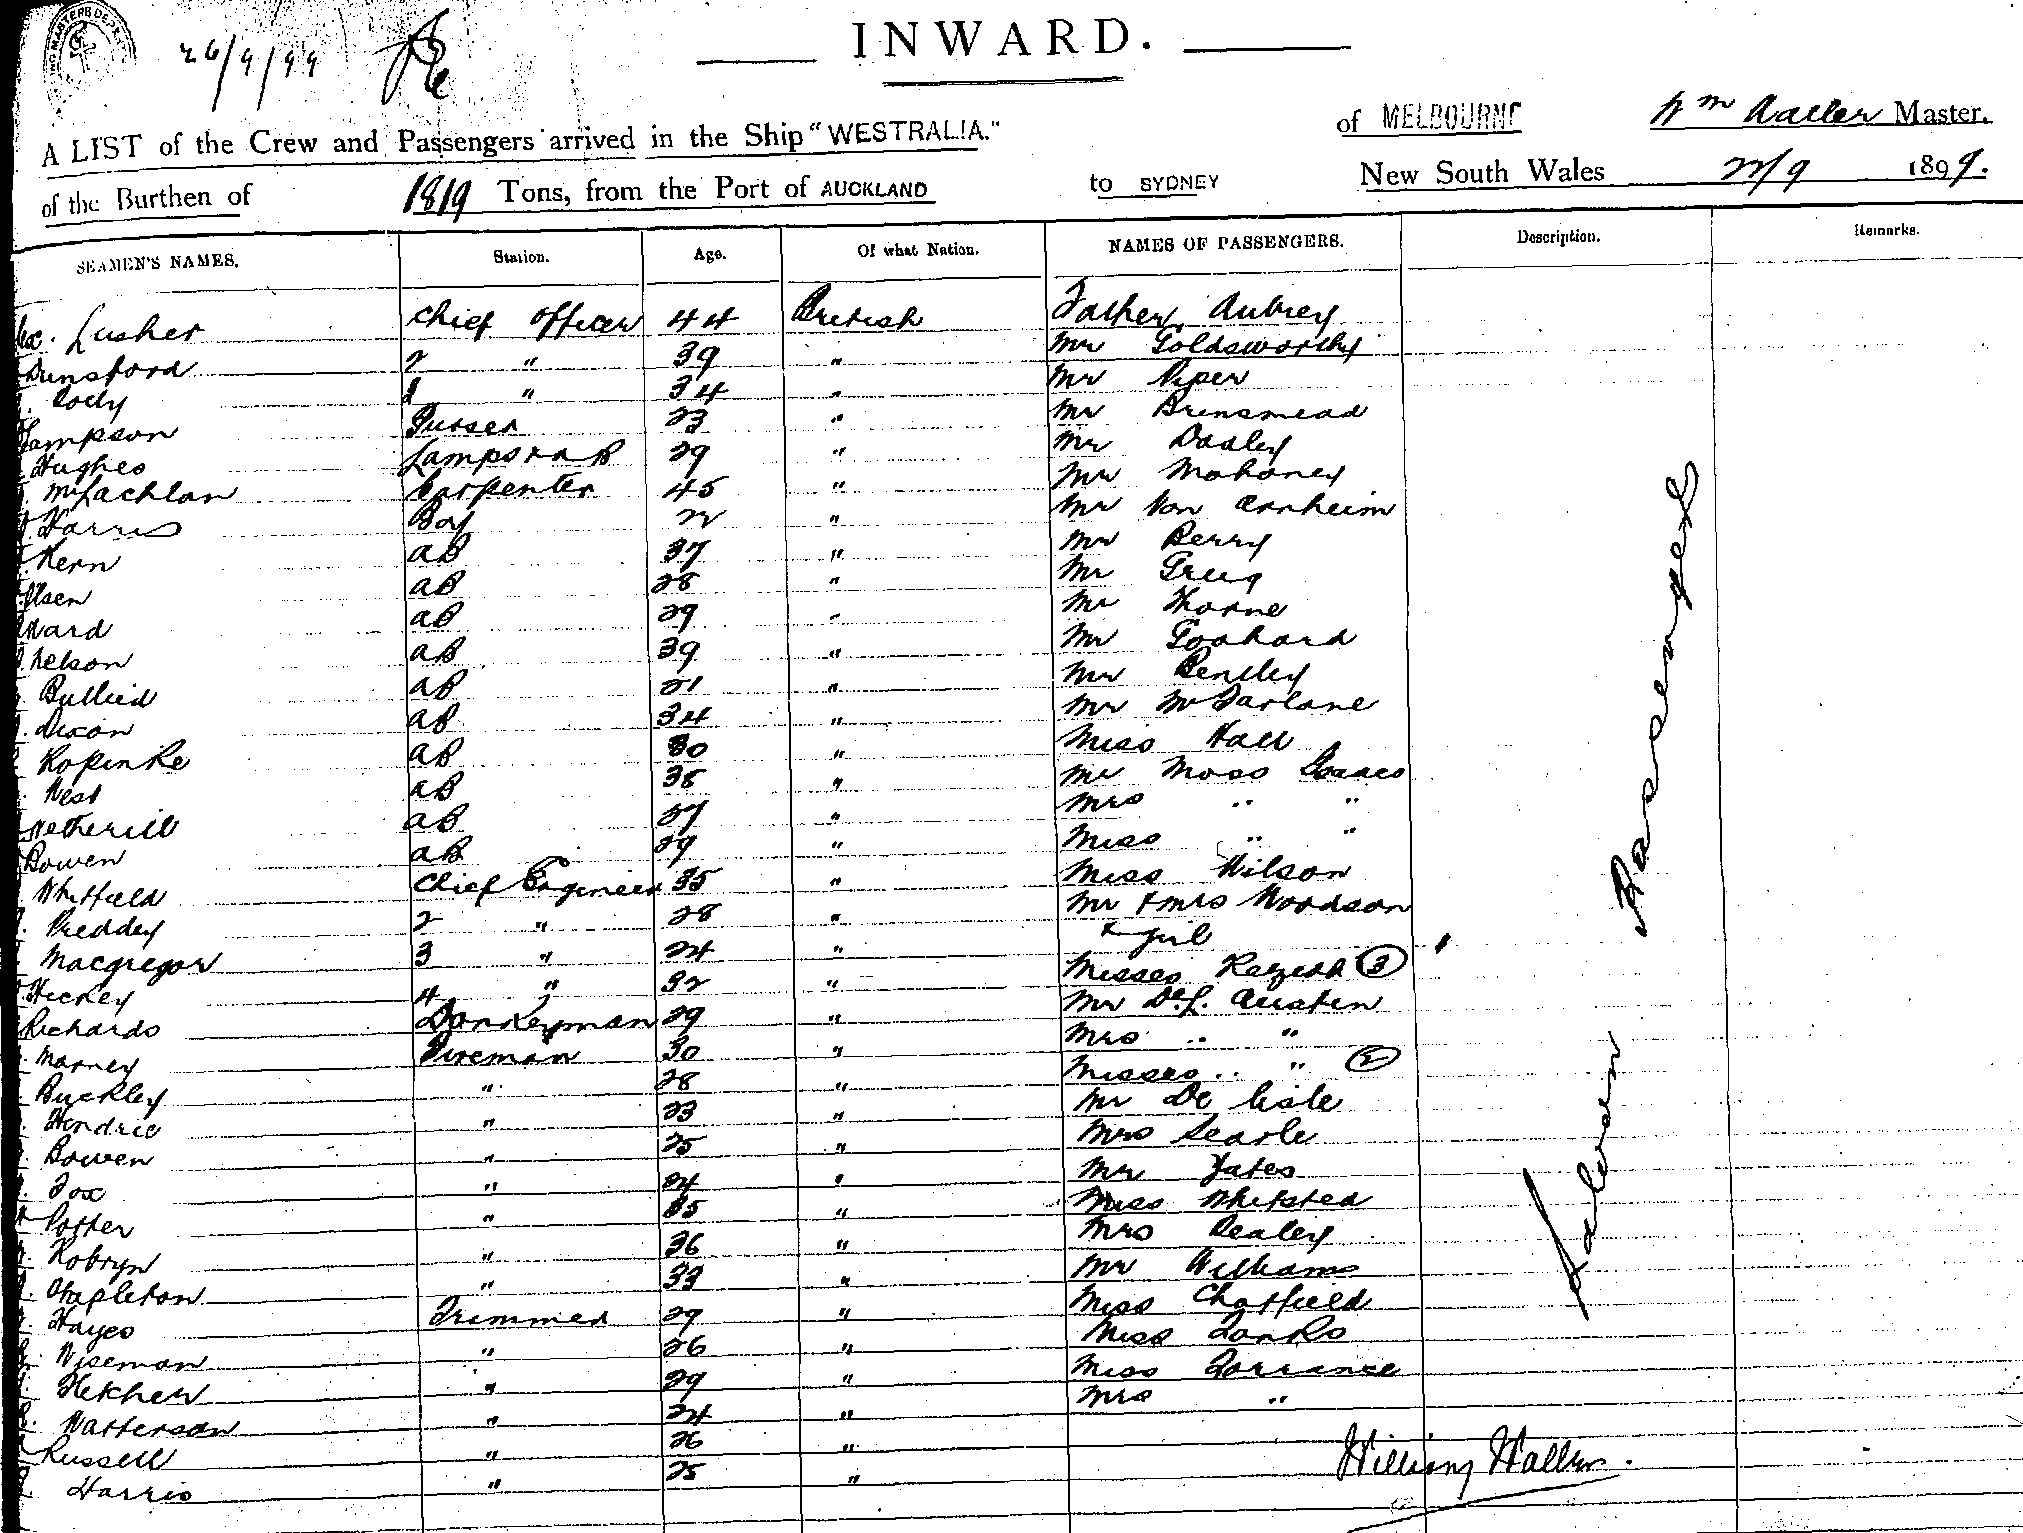 26/9/99
INWARD.
A LIST of the Crew and Passengers arrived in the Ship "WESTRALIA." of MELBOURNE Wm Waller Master.
of the Burthen of 1819 Tons, from the Port of AUCKLAND to SYDNEY New South Wales 22/9 1899.
SEAMEN'S NAMES. Station. Age. Of what Nation. NAMES OF PASSENGERS. Description. Remarks.
Lusher Chief Officer 44 British Father Aubrey
Dunsford 2 " 39 " Mr Goldsworthy
Cody 3 " 34 " Mr Piper
Sampson Purser 23 " Mr Brinsmead
Hughes Lamps & AB 29 " Mr
McLachlan Carpenter 45 " Mr Mahoney
Harris Boy 22 " Mr Von Arnheim
Kern AB 37 " Mr Berry
Olsen AB 28 " Mr Greig
Ward AB 29 " Mr Thorne
Nelson AB 39 " Mr
Bullied AB 21 " Mr Bentley
Dixon AB 34 " Mr McFarlane
Kopinke AB 30 " Miss Hall
West AB 38 " Mr Moss Isaacs
Netherill AB 27 " Mrs " "
Bowen AB 29 " Miss " "
Whitfield Chief Engineer 35 " Miss Wilson
Preddey 2 " 28 " Mr & Mrs Woodson
Macgregor 3 " 24 " & girl
Hickey 4 " 32 " Misses (3)
Richards Donkeyman 29 " Mr De L. Austin
Marney Fireman 30 " Mrs " "
Buckley " 28 " Misses " " (2)
Hendrie " 23 " Mr De Lisle
Bowen " 25 " Mrs Searle
Fox " 24 " Mr Yates
Potter " 35 " Miss Whitsted
Kobryn " 36 " Mrs Dealey
Stapleton " 33 " Mr Williams
Hayes Trimmer 29 " Miss Chatfield
Wiseman " 26 " Miss Banks
Fletcher " 29 " Miss Torrance
Watterson " 24 " Mrs "
Russell " 26 "
Harris " 25 "
Saloon Passengers
William Waller.